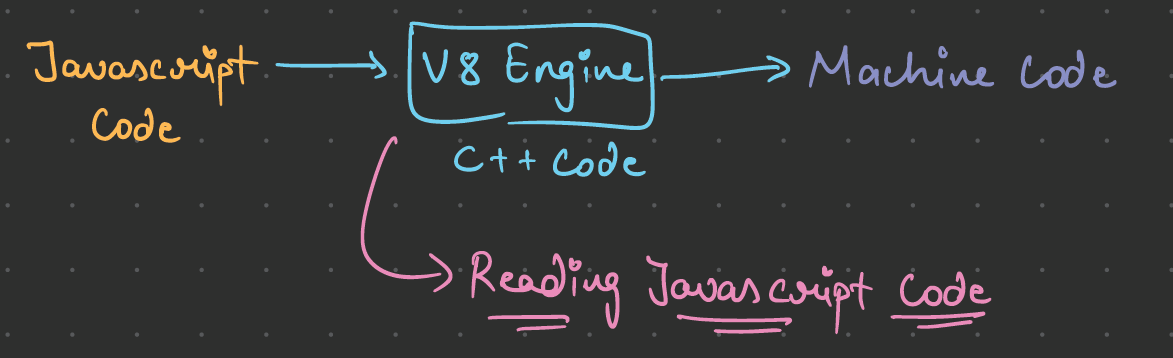 Javascript
Code
V8 Engine
C++ Code
Machine Code
Reading Javascript Code